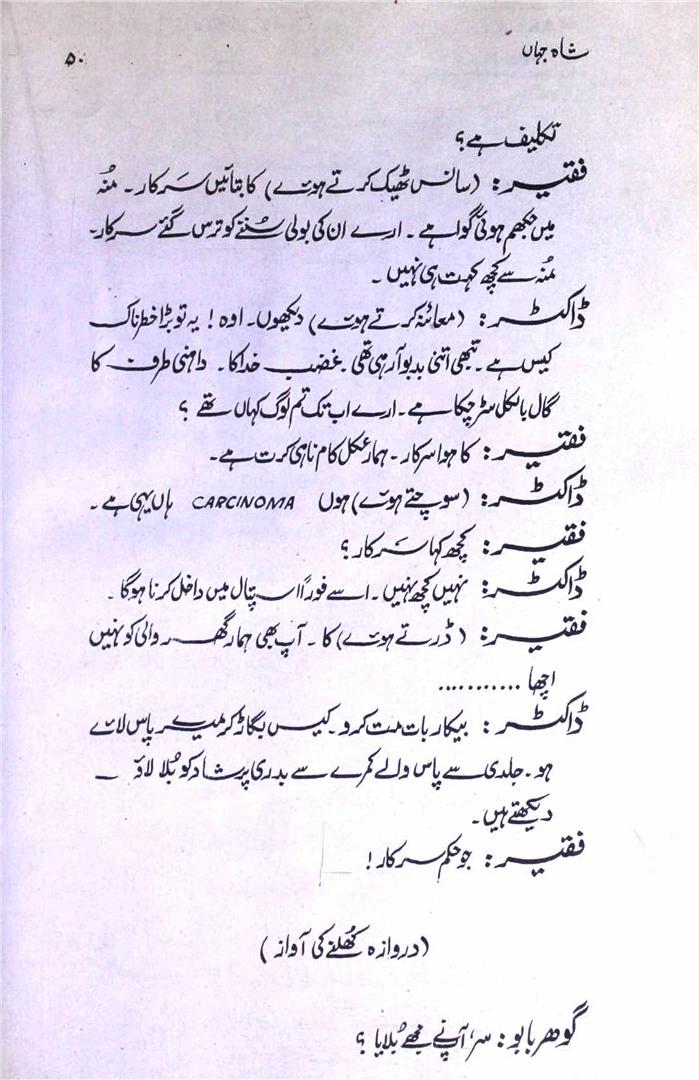 شاہ جہاں
۵۰
تکلیف ہے؟
فقیر: (سانس ٹھیک کرتے ہوئے) کا بتائیں سَرکار۔ مُنہ
میں جکھم ہوئی گوا ہے۔ ارے ان کی بولی سُننے کو ترس گئے سرکار۔
مُنہ سے کچھ کہت ہی نہیں۔
ڈاکٹر: (معائنہ کرتے ہوئے) دیکھوں۔ اوہ! یہ تو بڑا خطرناک
کیس ہے۔ تبھی اتنی بدبو آرہی تھی۔ غضب خدا کا۔ داہنی طرف کا
گال بالکل سڑ چکا ہے۔ ارے اب تک تم لوگ کہاں تھے؟
فقیر: کا ہوا سرکار۔ ہمار عکل کام ناہی کرت ہے۔
ڈاکٹر: (سوچتے ہوئے) ہوں CARCINOMA ہاں یہی ہے۔
فقیر: کچھ کہا سَرکار؟
ڈاکٹر: نہیں کچھ نہیں۔ اسے فوراً اسپتال میں داخل کرنا ہوگا۔
فقیر: (ڈرتے ہوئے) کا۔ آپ بھی ہمار گھر والی کو نہیں
اچھا ...........
ڈاکٹر: بیکار بات مت کرو۔ کیس بگاڑ کر میرے پاس لائے
ہو۔ جلدی سے پاس والے کمرے سے بدری پرشاد کو بُلا لاؤ ــ
دیکھتے ہیں۔
فقیر: جو حکم سرکار!
(دروازہ کُھلنے کی آواز)
گوہر بابو: سر، آپ نے مجھے بُلایا؟